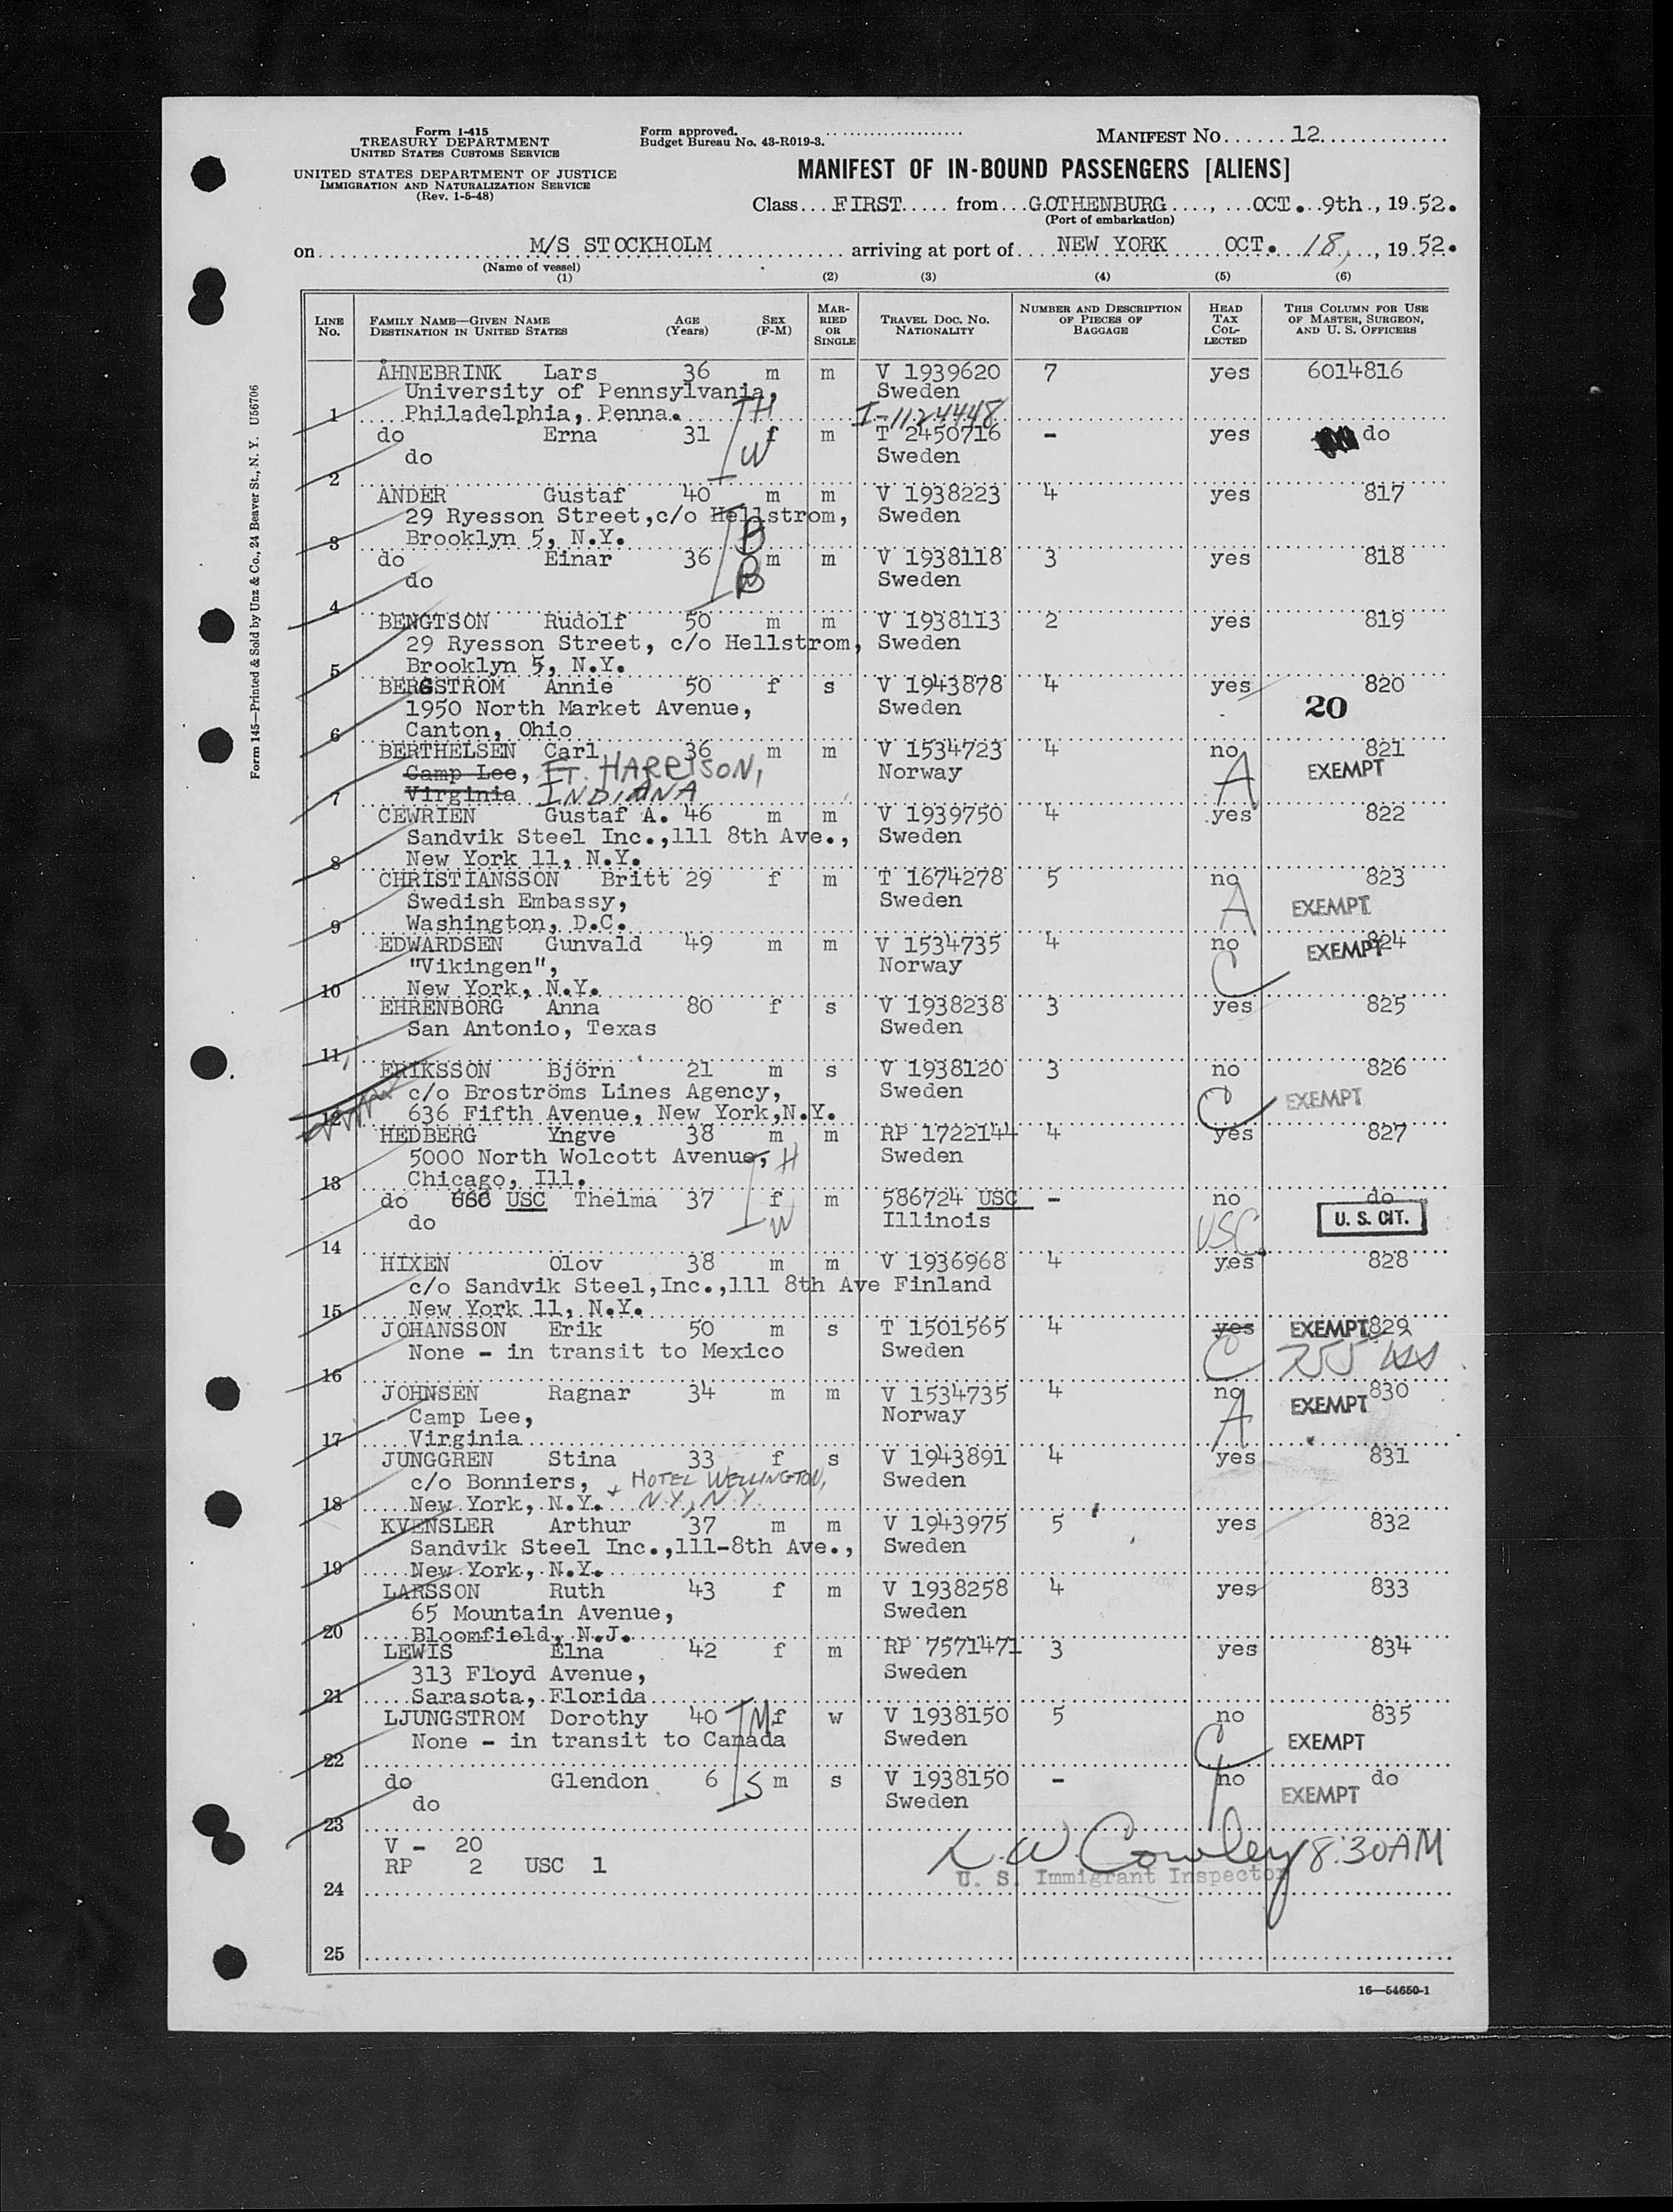 Form I-415
TREASURY DEPARTMENT
UNITED STATES CUSTOMS SERVICE
UNITED STATES DEPARTMENT OF JUSTICE
IMMIGRATION AND NATURALIZATION SERVICE
(Rev. 1-5-48)
Form approved.
Budget Bureau No. 43-R019-3.
MANIFEST NO. 12
MANIFEST OF IN-BOUND PASSENGERS [ALIENS]
Class FIRST from GOTHENBURG, OCT. 9th, 1952.
(Port of embarkation)
on M/S STOCKHOLM arriving at port of NEW YORK OCT. 18, 1952.
(Name of vessel)
(1) (2) (3) (4) (5) (6)
LINE No. FAMILY NAME—GIVEN NAME DESTINATION IN UNITED STATES AGE (Years) SEX (F-M) MARRIED OR SINGLE TRAVEL DOC. NO. NATIONALITY NUMBER AND DESCRIPTION OF PIECES OF BAGGAGE HEAD TAX COLLECTED THIS COLUMN FOR USE OF MASTER, SURGEON, AND U. S. OFFICERS
ÅHNEBRINK Lars 36 m m V 1939620 7 yes 6014816
University of Pennsylvania, Sweden
1 Philadelphia, Penna. H I-1124448
do Erna 31 f m T 2450716 - yes do
do W Sweden
2
ANDER Gustaf 40 m m V 1938223 4 yes 817
29 Ryesson Street,c/o Hellstrom, Sweden
3 Brooklyn 5, N.Y. B
do Einar 36 m m V 1938118 3 yes 818
do B Sweden
4
BENGTSON Rudolf 50 m m V 1938113 2 yes 819
29 Ryesson Street, c/o Hellstrom, Sweden
5 Brooklyn 5, N.Y.
BERGSTROM Annie 50 f s V 1943878 4 yes 820
1950 North Market Avenue, Sweden 20
6 Canton, Ohio
BERTHELSEN Carl 36 m m V 1534723 4 no 821
Camp Lee, FT. HARRISON, Norway A EXEMPT
7 Virginia INDIANA
CEWRIEN Gustaf A. 46 m m V 1939750 4 yes 822
Sandvik Steel Inc.,111 8th Ave., Sweden
8 New York 11, N.Y.
CHRISTIANSSON Britt 29 f m T 1674278 5 no 823
Swedish Embassy, Sweden A EXEMPT
9 Washington, D.C.
EDWARDSEN Gunvald 49 m m V 1534735 4 no EXEMPT 824
"Vikingen", Norway C
10 New York, N.Y.
EHRENBORG Anna 80 f s V 1938238 3 yes 825
San Antonio, Texas Sweden
11
ERIKSSON Björn 21 m s V 1938120 3 no 826
c/o Broströms Lines Agency, Sweden C EXEMPT
12 636 Fifth Avenue, New York,N.Y.
HEDBERG Yngve 38 m m RP 1722144 4 yes 827
5000 North Wolcott Avenue, H Sweden
13 Chicago, Ill.
do USC Thelma 37 f m 586724 USC - no do
do W Illinois USC U. S. CIT.
14
HIXEN Olov 38 m m V 1936968 4 yes 828
c/o Sandvik Steel,Inc.,111 8th Ave Finland
15 New York 11, N.Y.
JOHANSSON Erik 50 m s T 1501565 4 yes EXEMPT 829
None - in transit to Mexico Sweden C
16
JOHNSEN Ragnar 34 m m V 1534735 4 no 830
Camp Lee, Norway A EXEMPT
17 Virginia
JUNGGREN Stina 33 f s V 1943891 4 yes 831
c/o Bonniers, + HOTEL WELLINGTON, Sweden
18 New York, N.Y. N.Y., N.Y.
KVENSLER Arthur 37 m m V 1943975 5 yes 832
Sandvik Steel Inc.,111-8th Ave., Sweden
19 New York, N.Y.
LARSSON Ruth 43 f m V 1938258 4 yes 833
65 Mountain Avenue, Sweden
20 Bloomfield, N.J.
LEWIS Elna 42 f m RP 7571471 3 yes 834
313 Floyd Avenue, Sweden
21 Sarasota, Florida
LJUNGSTROM Dorothy 40 M f w V 1938150 5 no 835
None - in transit to Canada Sweden C EXEMPT
22
do Glendon 6 S m s V 1938150 - no do
do Sweden EXEMPT
23
V - 20
RP 2 USC 1 L. W. Cowley 8:30AM
U. S. Immigrant Inspector
24
25
16—54650-1
Form 145—Printed & Sold by Unz & Co., 24 Beaver St., N. Y. U56706